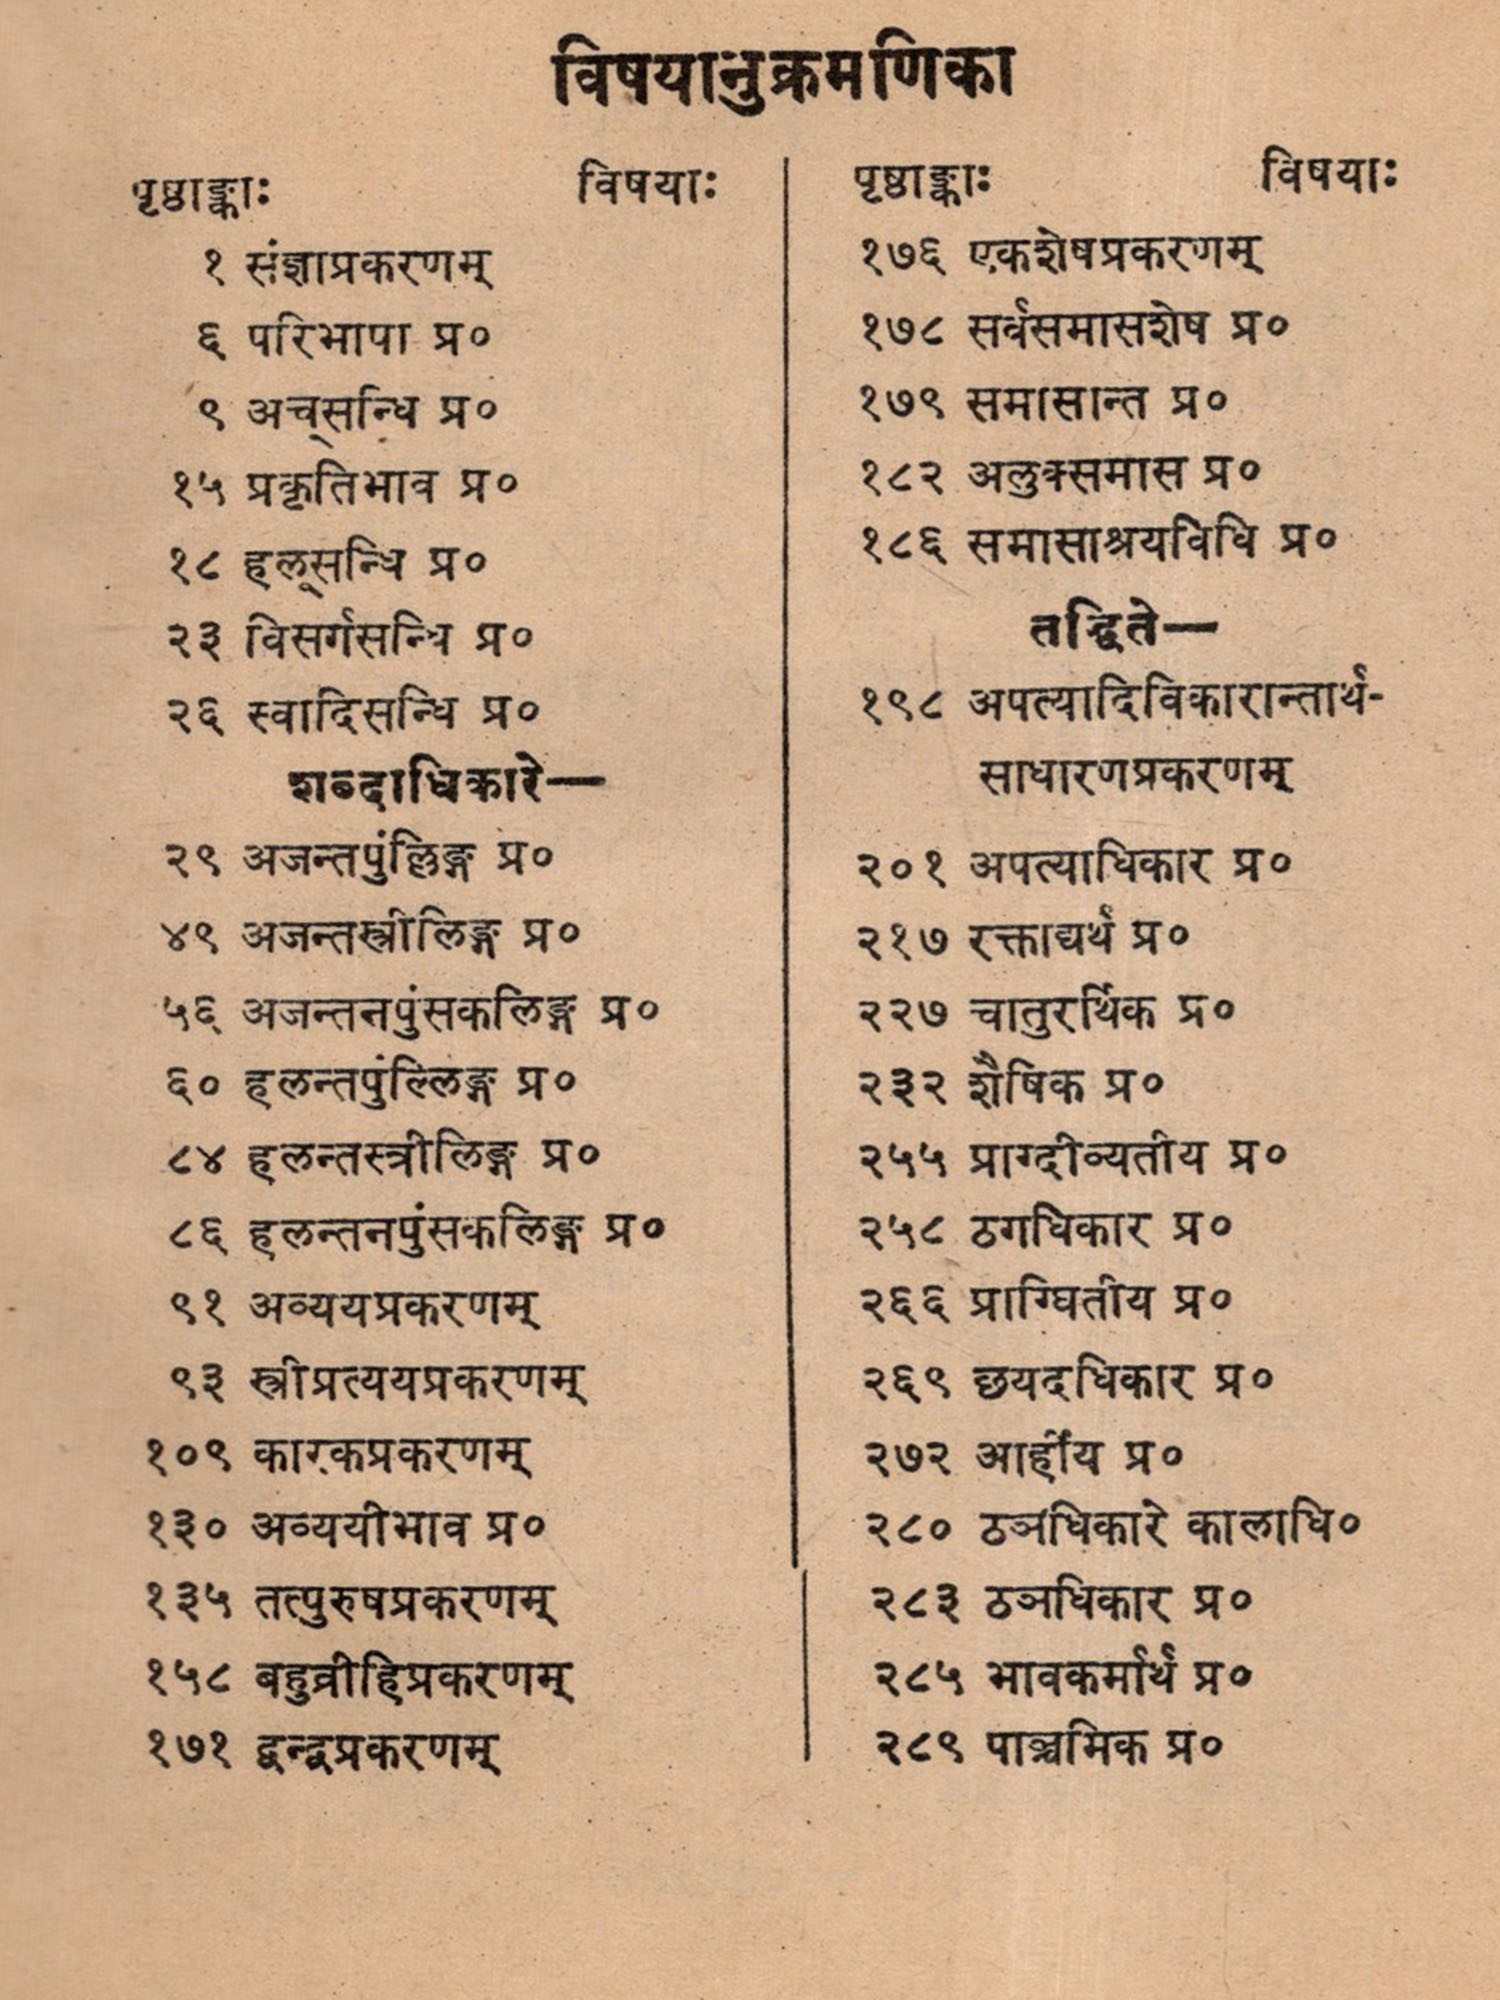 विषयानुक्रमणिका
पृष्ठाङ्काः विषयाः
१ संज्ञाप्रकरणम्
६ परिभाषा प्र०
९ अच्सन्धि प्र०
१५ प्रकृतिभाव प्र०
१८ हल्सन्धि प्र०
२३ विसर्गसन्धि प्र०
२६ स्वादिसन्धि प्र०
शब्दाधिकारे—
२९ अजन्तपुंल्लिङ्ग प्र०
४९ अजन्तस्त्रीलिङ्ग प्र०
५६ अजन्तनपुंसकलिङ्ग प्र०
६० हलन्तपुंल्लिङ्ग प्र०
८४ हलन्तस्त्रीलिङ्ग प्र०
८६ हलन्तनपुंसकलिङ्ग प्र०
९१ अव्ययप्रकरणम्
९३ स्त्रीप्रत्ययप्रकरणम्
१०९ कारकप्रकरणम्
१३० अव्ययीभाव प्र०
१३५ तत्पुरुषप्रकरणम्
१५८ बहुव्रीहिप्रकरणम्
१७१ द्वन्द्वप्रकरणम्
पृष्ठाङ्काः विषयाः
१७६ एकशेषप्रकरणम्
१७८ सर्वसमासशेष प्र०
१७९ समासान्त प्र०
१८२ अलुक्समास प्र०
१८६ समासाश्रयविधि प्र०
तद्धिते—
१९८ अपत्यादिविकारान्तार्थ-
साधारणप्रकरणम्
२०१ अपत्याधिकार प्र०
२१७ रक्ताद्यर्थ प्र०
२२७ चातुरर्थिक प्र०
२३२ शैषिक प्र०
२५५ प्राग्दीव्यतीय प्र०
२५८ ठगधिकार प्र०
२६६ प्राग्घितीय प्र०
२६९ छयदधिकार प्र०
२७२ आर्हीय प्र०
२८० ठञधिकारे कालाधि०
२८३ ठञधिकार प्र०
२८५ भावकर्मार्थ प्र०
२८९ पाञ्चमिक प्र०